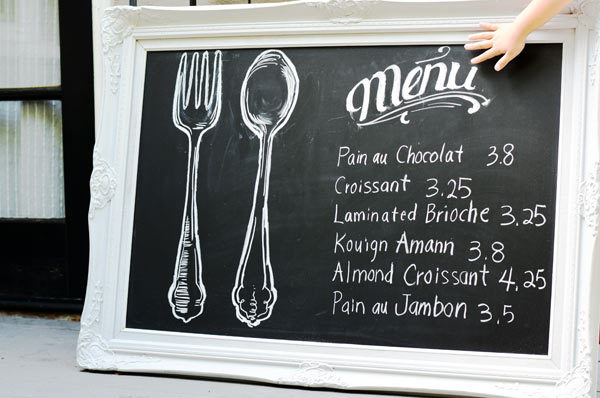 Menu
Pain au Chocolat 3.8
Croissant 3.25
Laminated Brioche 3.25
Kouign Amann 3.8
Almond Croissant 4.25
Pain au Jambon 3.5